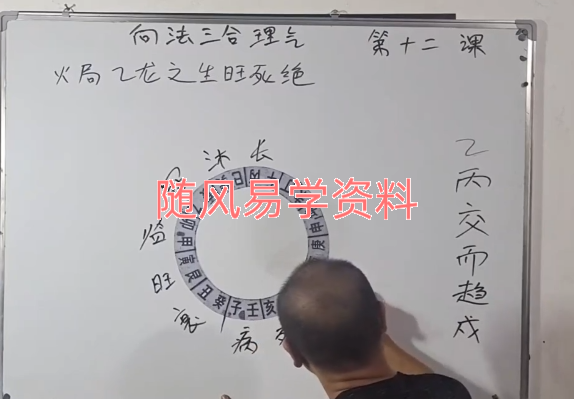 向法三合理气 第十二课
火局乙龙之生旺死绝
沐 长
冠
临
旺
衰
病
随风易学资料
巳 丙 午 丁
申 庚
甲 寅 艮 丑 癸 子 壬 亥
乙丙交而趋戌